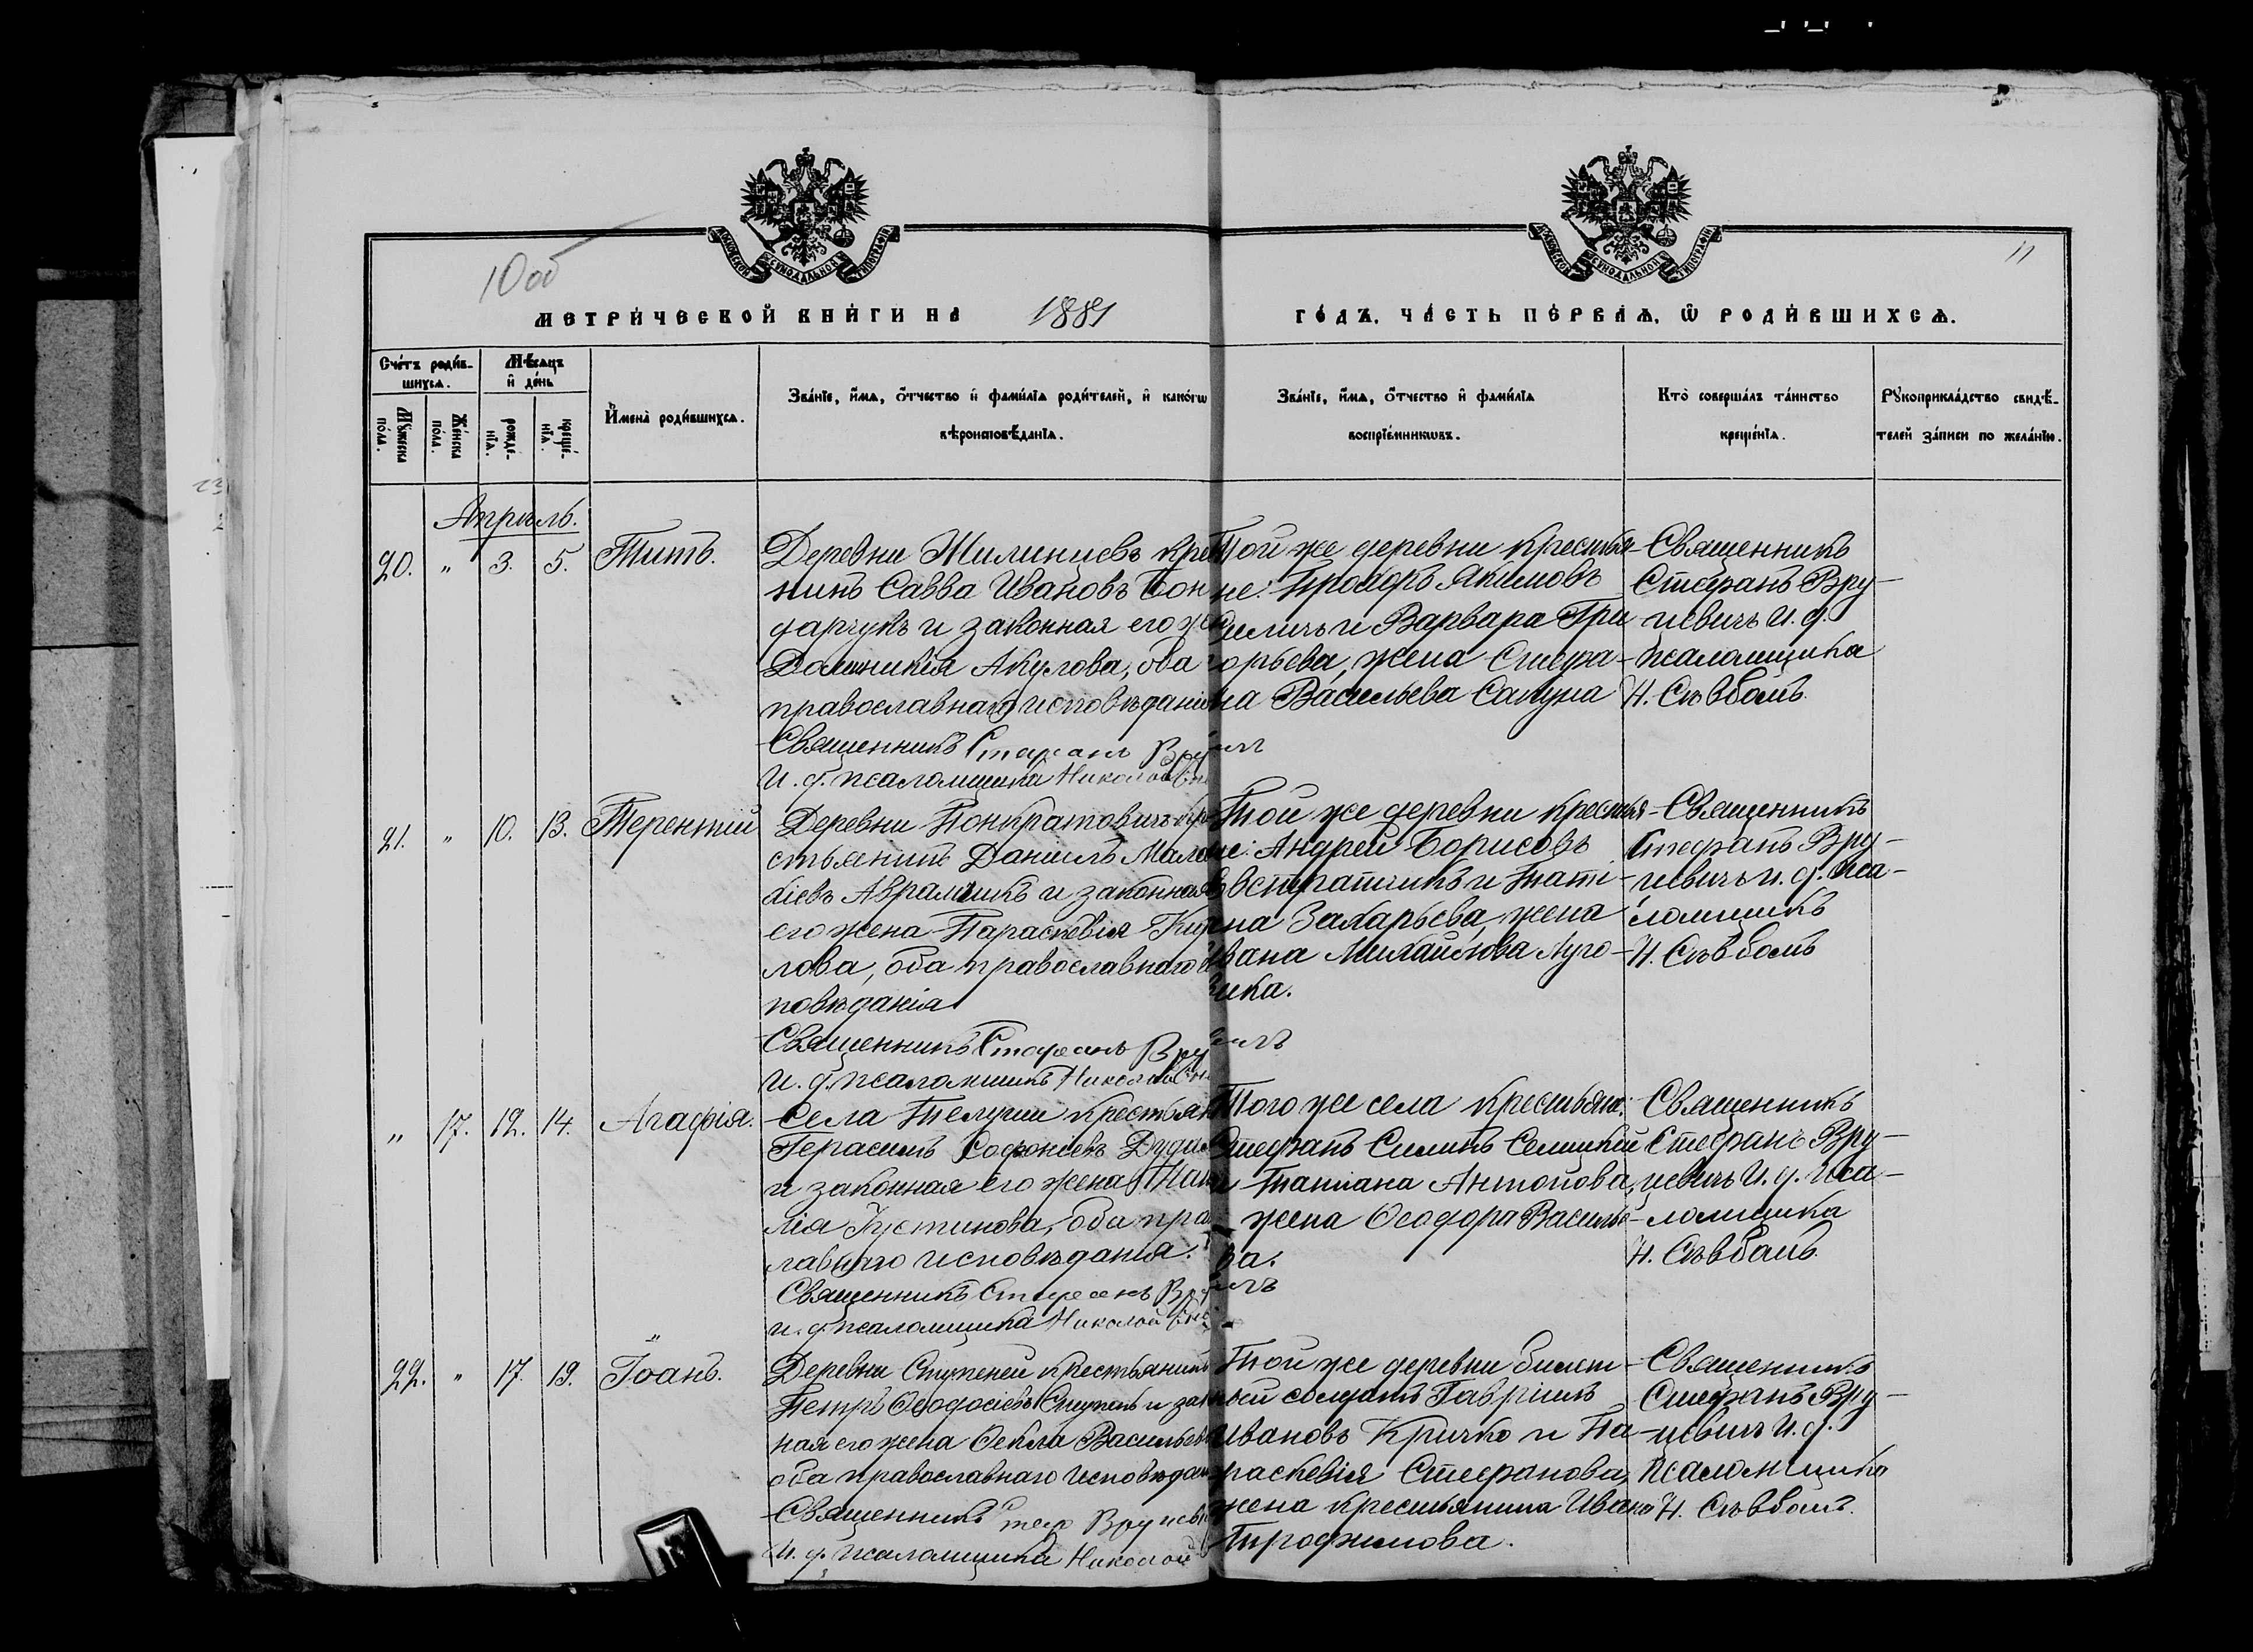 МОСКОВСКОЙ СѴНОДАЛЬНОЙ ТИПОГРАФІИ
МОСКОВСКОЙ СѴНОДАЛЬНОЙ ТИПОГРАФІИ
10 об
11
МЕТРИ́ЧЕСКОЙ КНИ́ГИ НА 1881
ГО́ДЪ, ЧА́СТЬ ПЕ́РВАѦ, Ѽ РОДИ́ВШИХСѦ.
Сче́тъ роди́в-
шихсѧ.
Мѣ́сѧцъ
и҆ де́нь
Мꙋ́жеска
по́ла.
Же́нска
по́ла.
рожде́-
нїѧ.
креще́-
нїѧ.
И҆мена̀ роди́вшихсѧ.
Зва́нїе, и҆́мѧ, ѻ҆́тчество и҆ фами́лїѧ роди́телей, и҆ како́гѡ
вѣроисповѣ́данїѧ.
Зва́нїе, и҆́мѧ, ѻ҆́тчество и҆ фами́лїѧ
воспрїе́мникѡвъ.
Кто̀ соверша́лъ та́инство
креще́нїѧ.
Рꙋкоприкла́дство свидѣ́-
телей за́писи по жела́нїю.
Апрѣль.
20. " 3. 5. Титъ.
Деревни Жилиничъ кре
нинъ Савва Ивановъ Бон
дарчукъ и законная его же
Домникія Акулова, оба
православнаго исповѣданія
Священникъ Стефанъ Вру
И. д. псаломщика Николай
Той же деревни крестья-
не: Прохоръ Якимовъ
и Варвара Гри-
горьева, жена Стефа-
на Васильева Сапуна
Священникъ
Стефанъ Вру-
цевичъ И. д.
псаломщика
Н.
21. " 10. 13. Терентій
Деревни Понкратовичъ кре
стьянинъ Даніилъ Мала
хіевъ Аврамчикъ и законная
его жена Параскевія Кири
лова, оба православнаго ис
повѣданія
Священникъ Стефанъ Вру
И. д. псаломщика Николай
Той же деревни крестья-
не: Андрей Борисовъ
и Тати-
на Захарьева, жена
Ивана Михайлова Луго-
вика.
Священникъ
Стефанъ Вру-
цевичъ и. д. пса-
ломщикъ
Н.
" 17. 12. 14. Агафія.
Села Телуши крестьян
Герасимъ Софоніевъ
и законная его жена Ната
лія Іустинова, оба пра
лавнаго исповѣданія.
Священникъ Стефанъ Вру
и. д. псаломщика Николай
Того же села крестьяне:
Стефанъ Силинъ Селицкій
и Татіана Антонова,
жена Ѳеодора Василье-
ва.
Священникъ
Стефанъ Вру-
цевичъ И. д. пса-
ломщика
Н.
22. " 17. 19. Іоанъ.
Деревни Ступеней крестьянинъ
Петръ Ѳеодосіевъ Ступень и закон
ная его жена Ѳекла Васильева
оба православнаго исповѣданія
Священникъ Стеф Вруцев
И. д. псаломщика Николай
Той же деревни билет-
ный солдатъ Гавріилъ
Ивановъ Кричко и Па-
раскевія Стефанова,
жена крестьянина Ивана
Трофимова.
Священникъ
Стефанъ Вру-
цевичъ И. д.
псаломщика
Н.